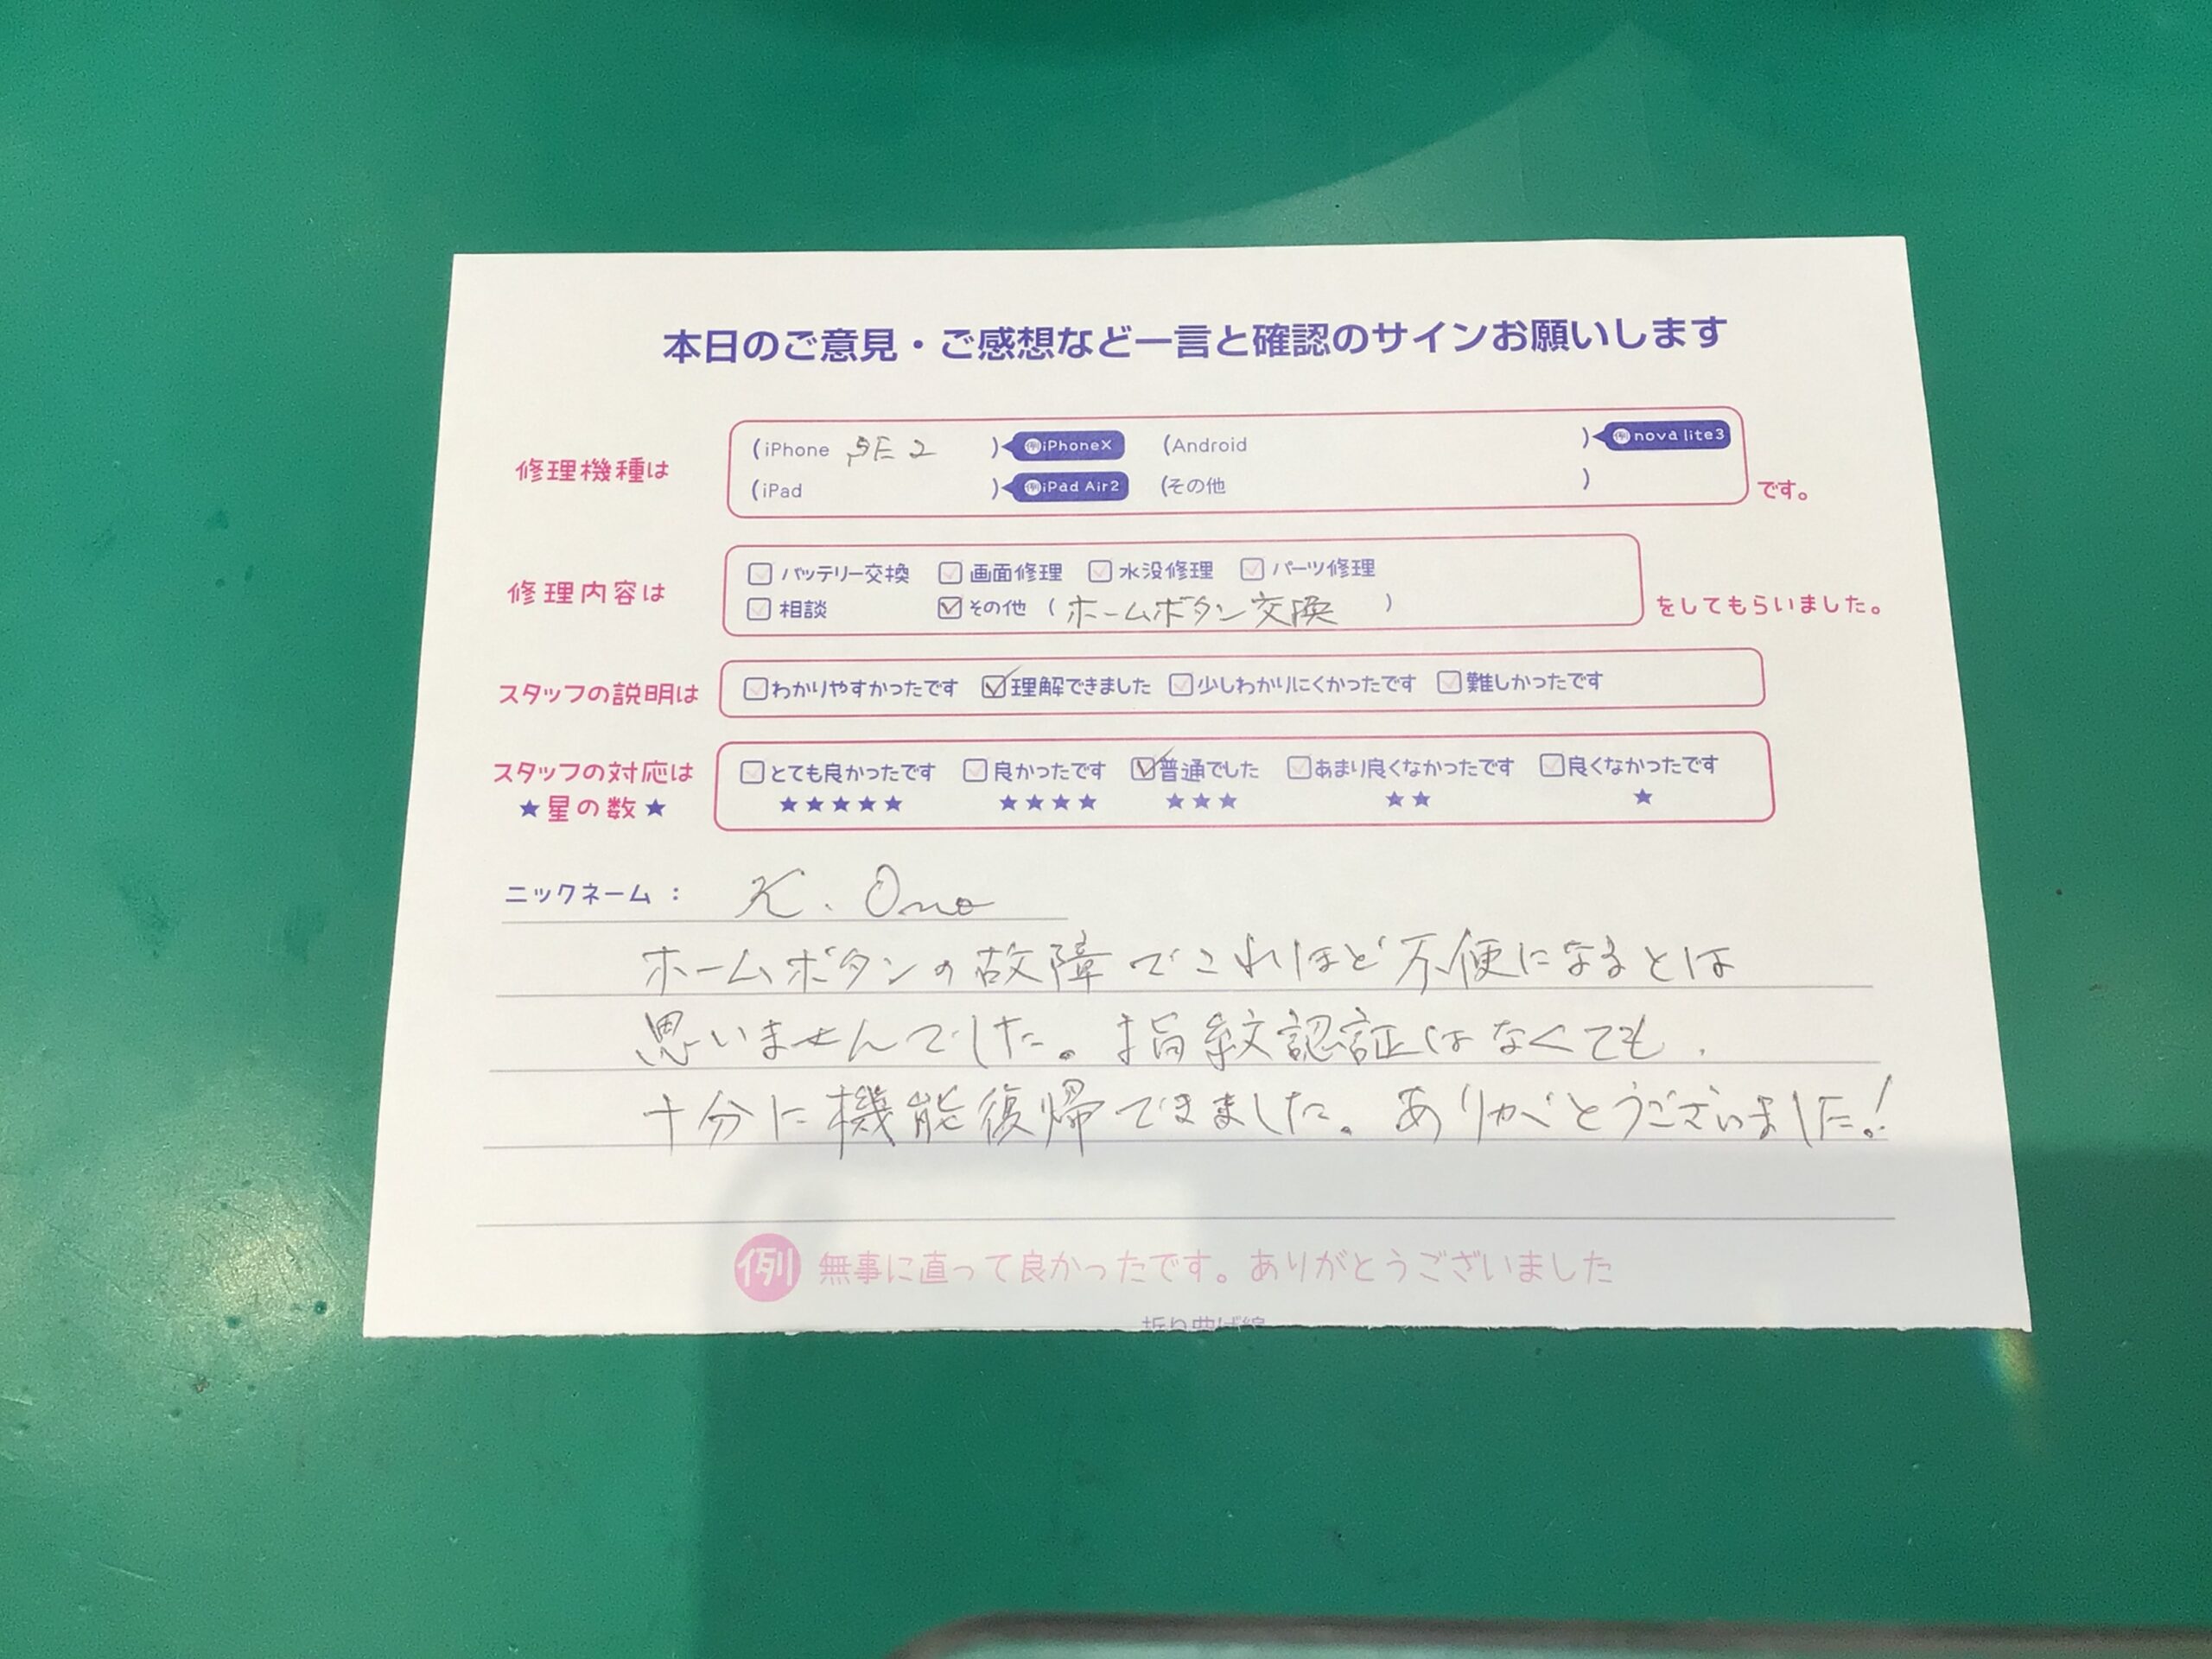 本日のご意見・ご感想など一言と確認のサインお願いします
修理機種は
(iPhone SE2 ) 例iPhoneX (Android ) 例nova lite3
(iPad ) 例iPad Air2 (その他 ) です。
修理内容は
バッテリー交換 画面修理 水没修理 パーツ修理
相談 その他 ( ホームボタン交換 ) をしてもらいました。
スタッフの説明は わかりやすかったです 理解できました 少しわかりにくかったです 難しかったです
スタッフの対応は とても良かったです 良かったです 普通でした あまり良くなかったです 良くなかったです
★星の数★ ★★★★★ ★★★★ ★★★ ★★ ★
ニックネーム： K. Ono
ホームボタンの故障でこれほど不便になるとは
思いませんでした。指紋認証はなくても、
十分に機能復帰できました。ありがとうございました!
例 無事に直って良かったです。ありがとうございました
折り曲げ線